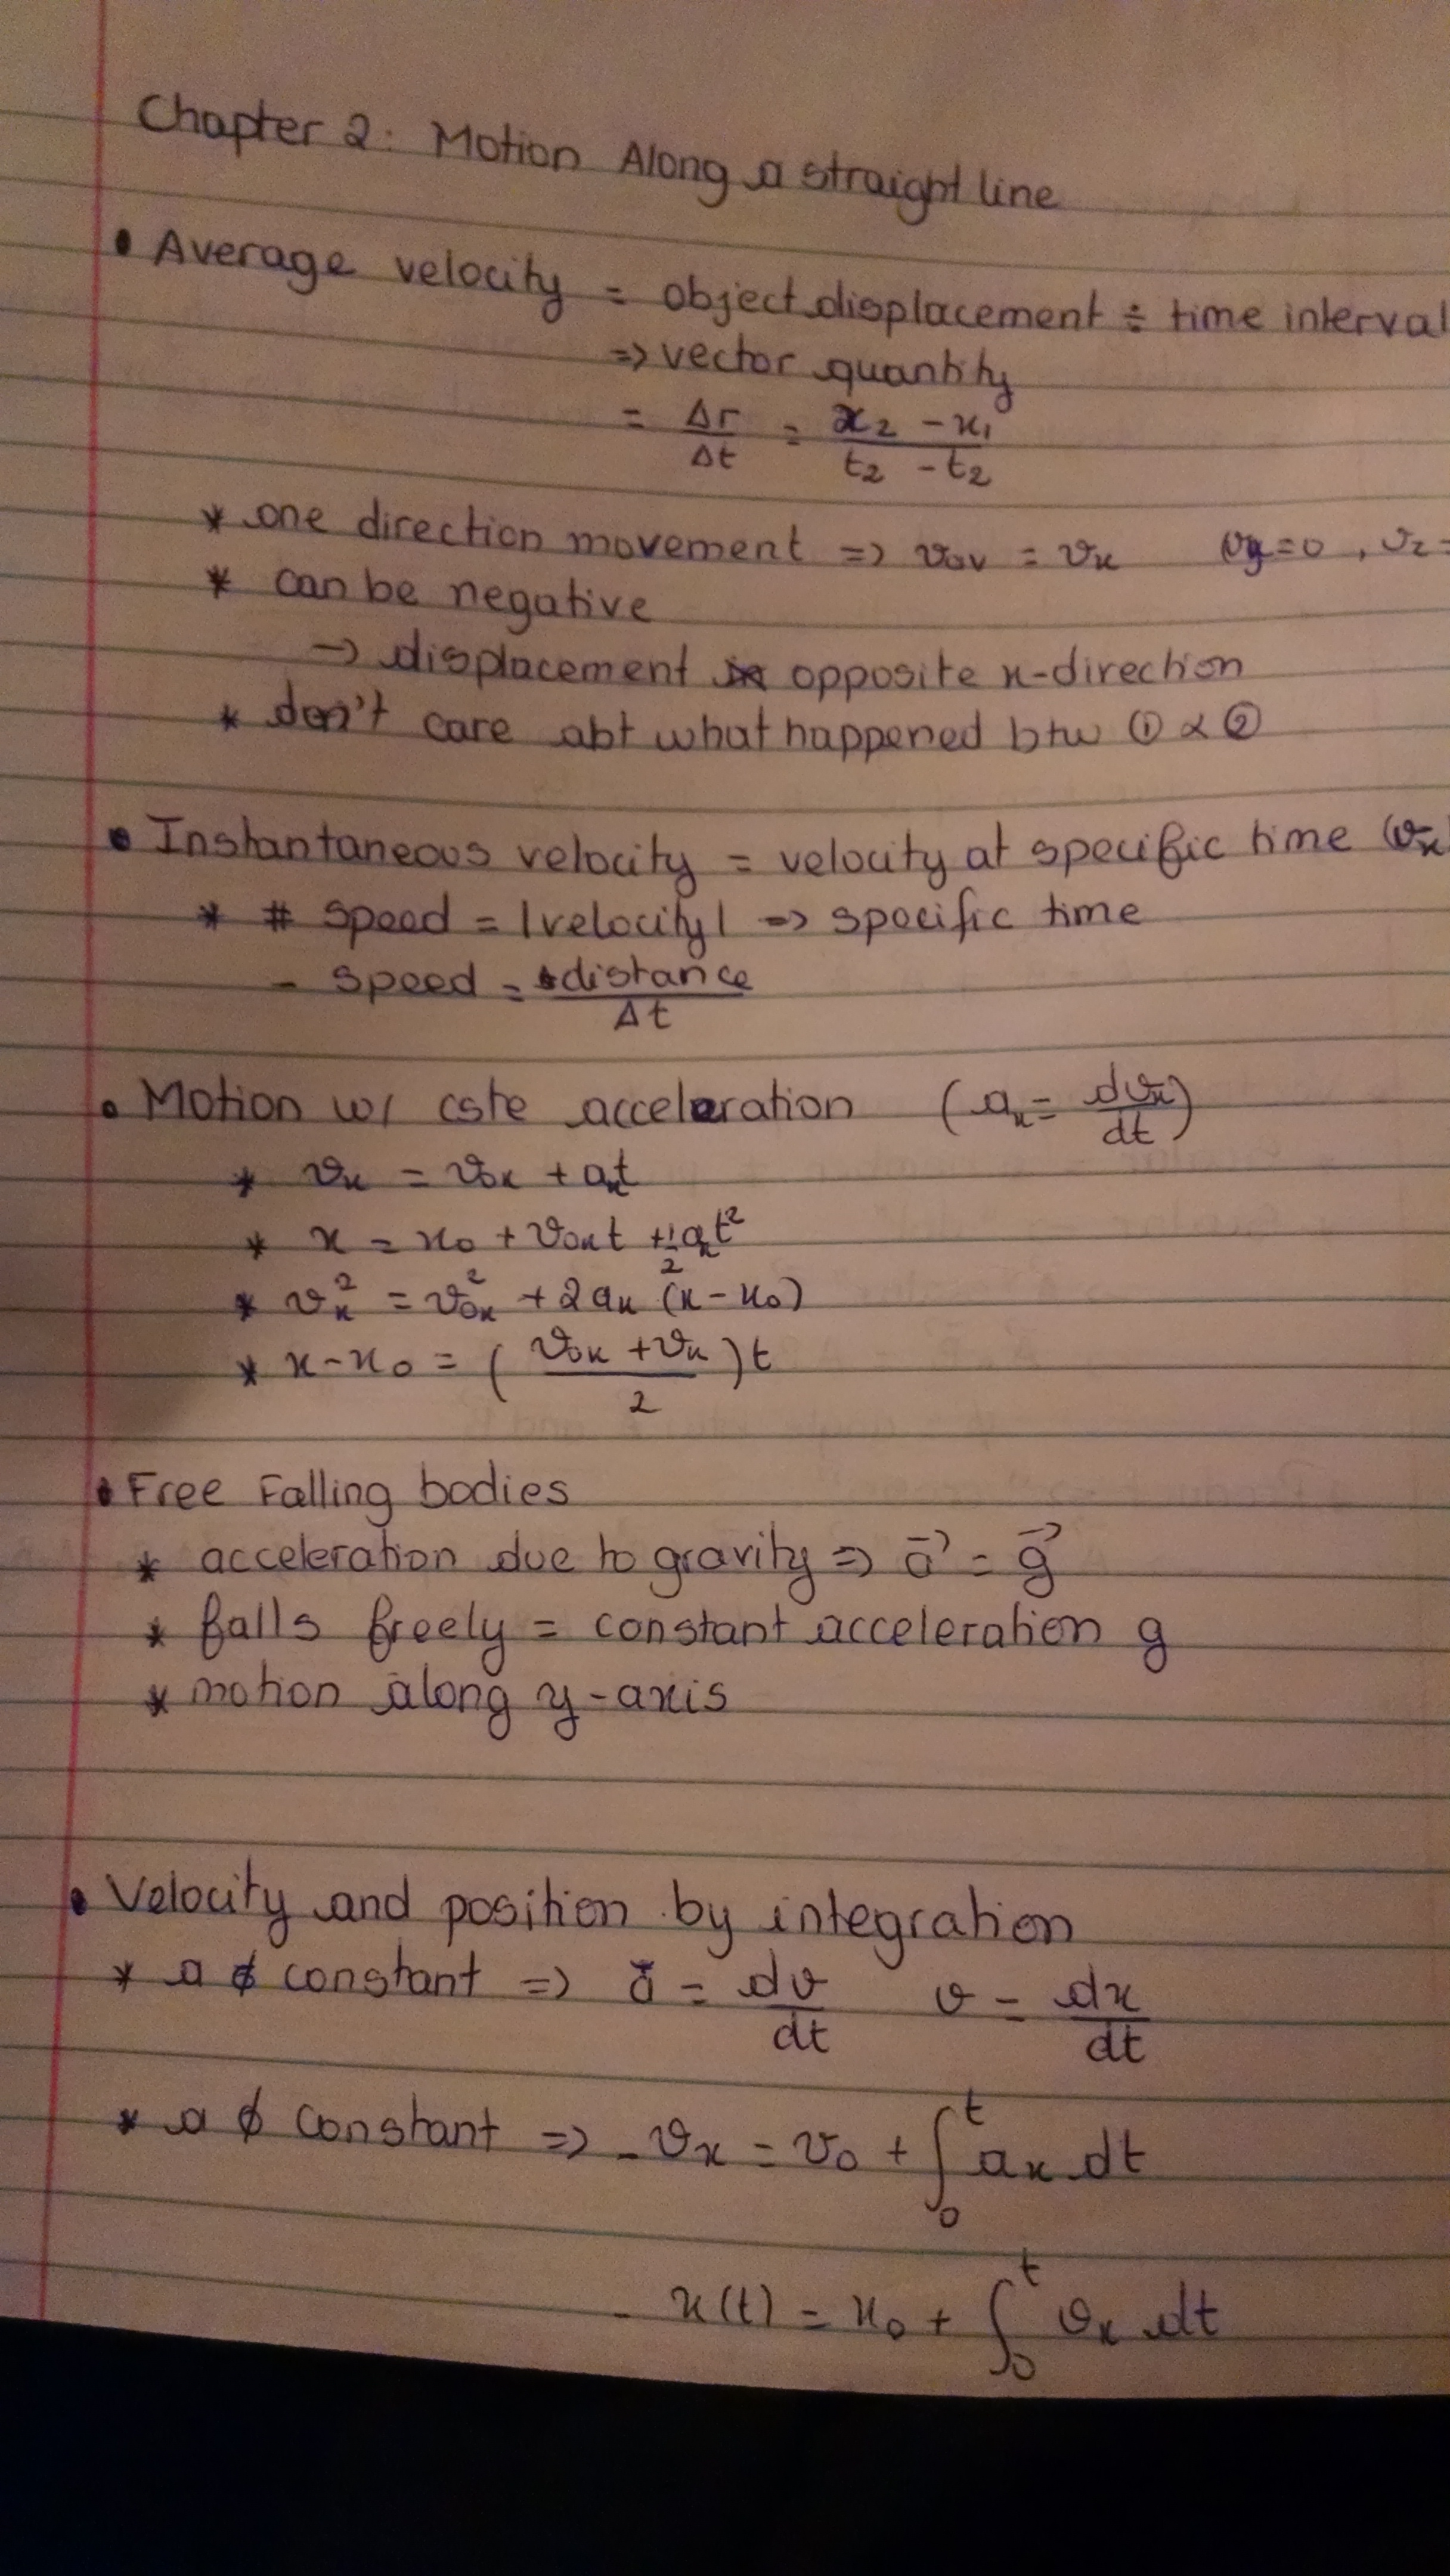 Chapter 2: Motion Along a straight line
• Average velocity = object displacement ÷ time interval
=> vector quantity
= Δr/Δt = x₂ - x₁/t₂ - t₂
* one direction movement => vav = vx (vy=0, vz=
* can be negative
-> displacement opposite x-direction
* don't care abt what happened btw ① & ②
• Instantaneous velocity = velocity at specific time (vx)
* # speed = |velocity| => specific time
- speed = distance/Δt
• Motion w/ cste acceleration (ax = dvx/dt)
* vx = v0x + axt
* x = x0 + v0xt + 1/2 axt²
* vx² = v0x² + 2ax (x - x0)
* x - x0 = (v0x + vx/2)t
• Free Falling bodies
* acceleration due to gravity => a⃗ = g⃗
* falls freely = constant acceleration g
* motion along y-axis
• Velocity and position by integration
* a ≠ constant => a⃗ = dv/dt v = dx/dt
* a ≠ constant => - vx = v0 + ∫₀ᵗ ax dt
- x(t) = x0 + ∫₀ᵗ vx dt